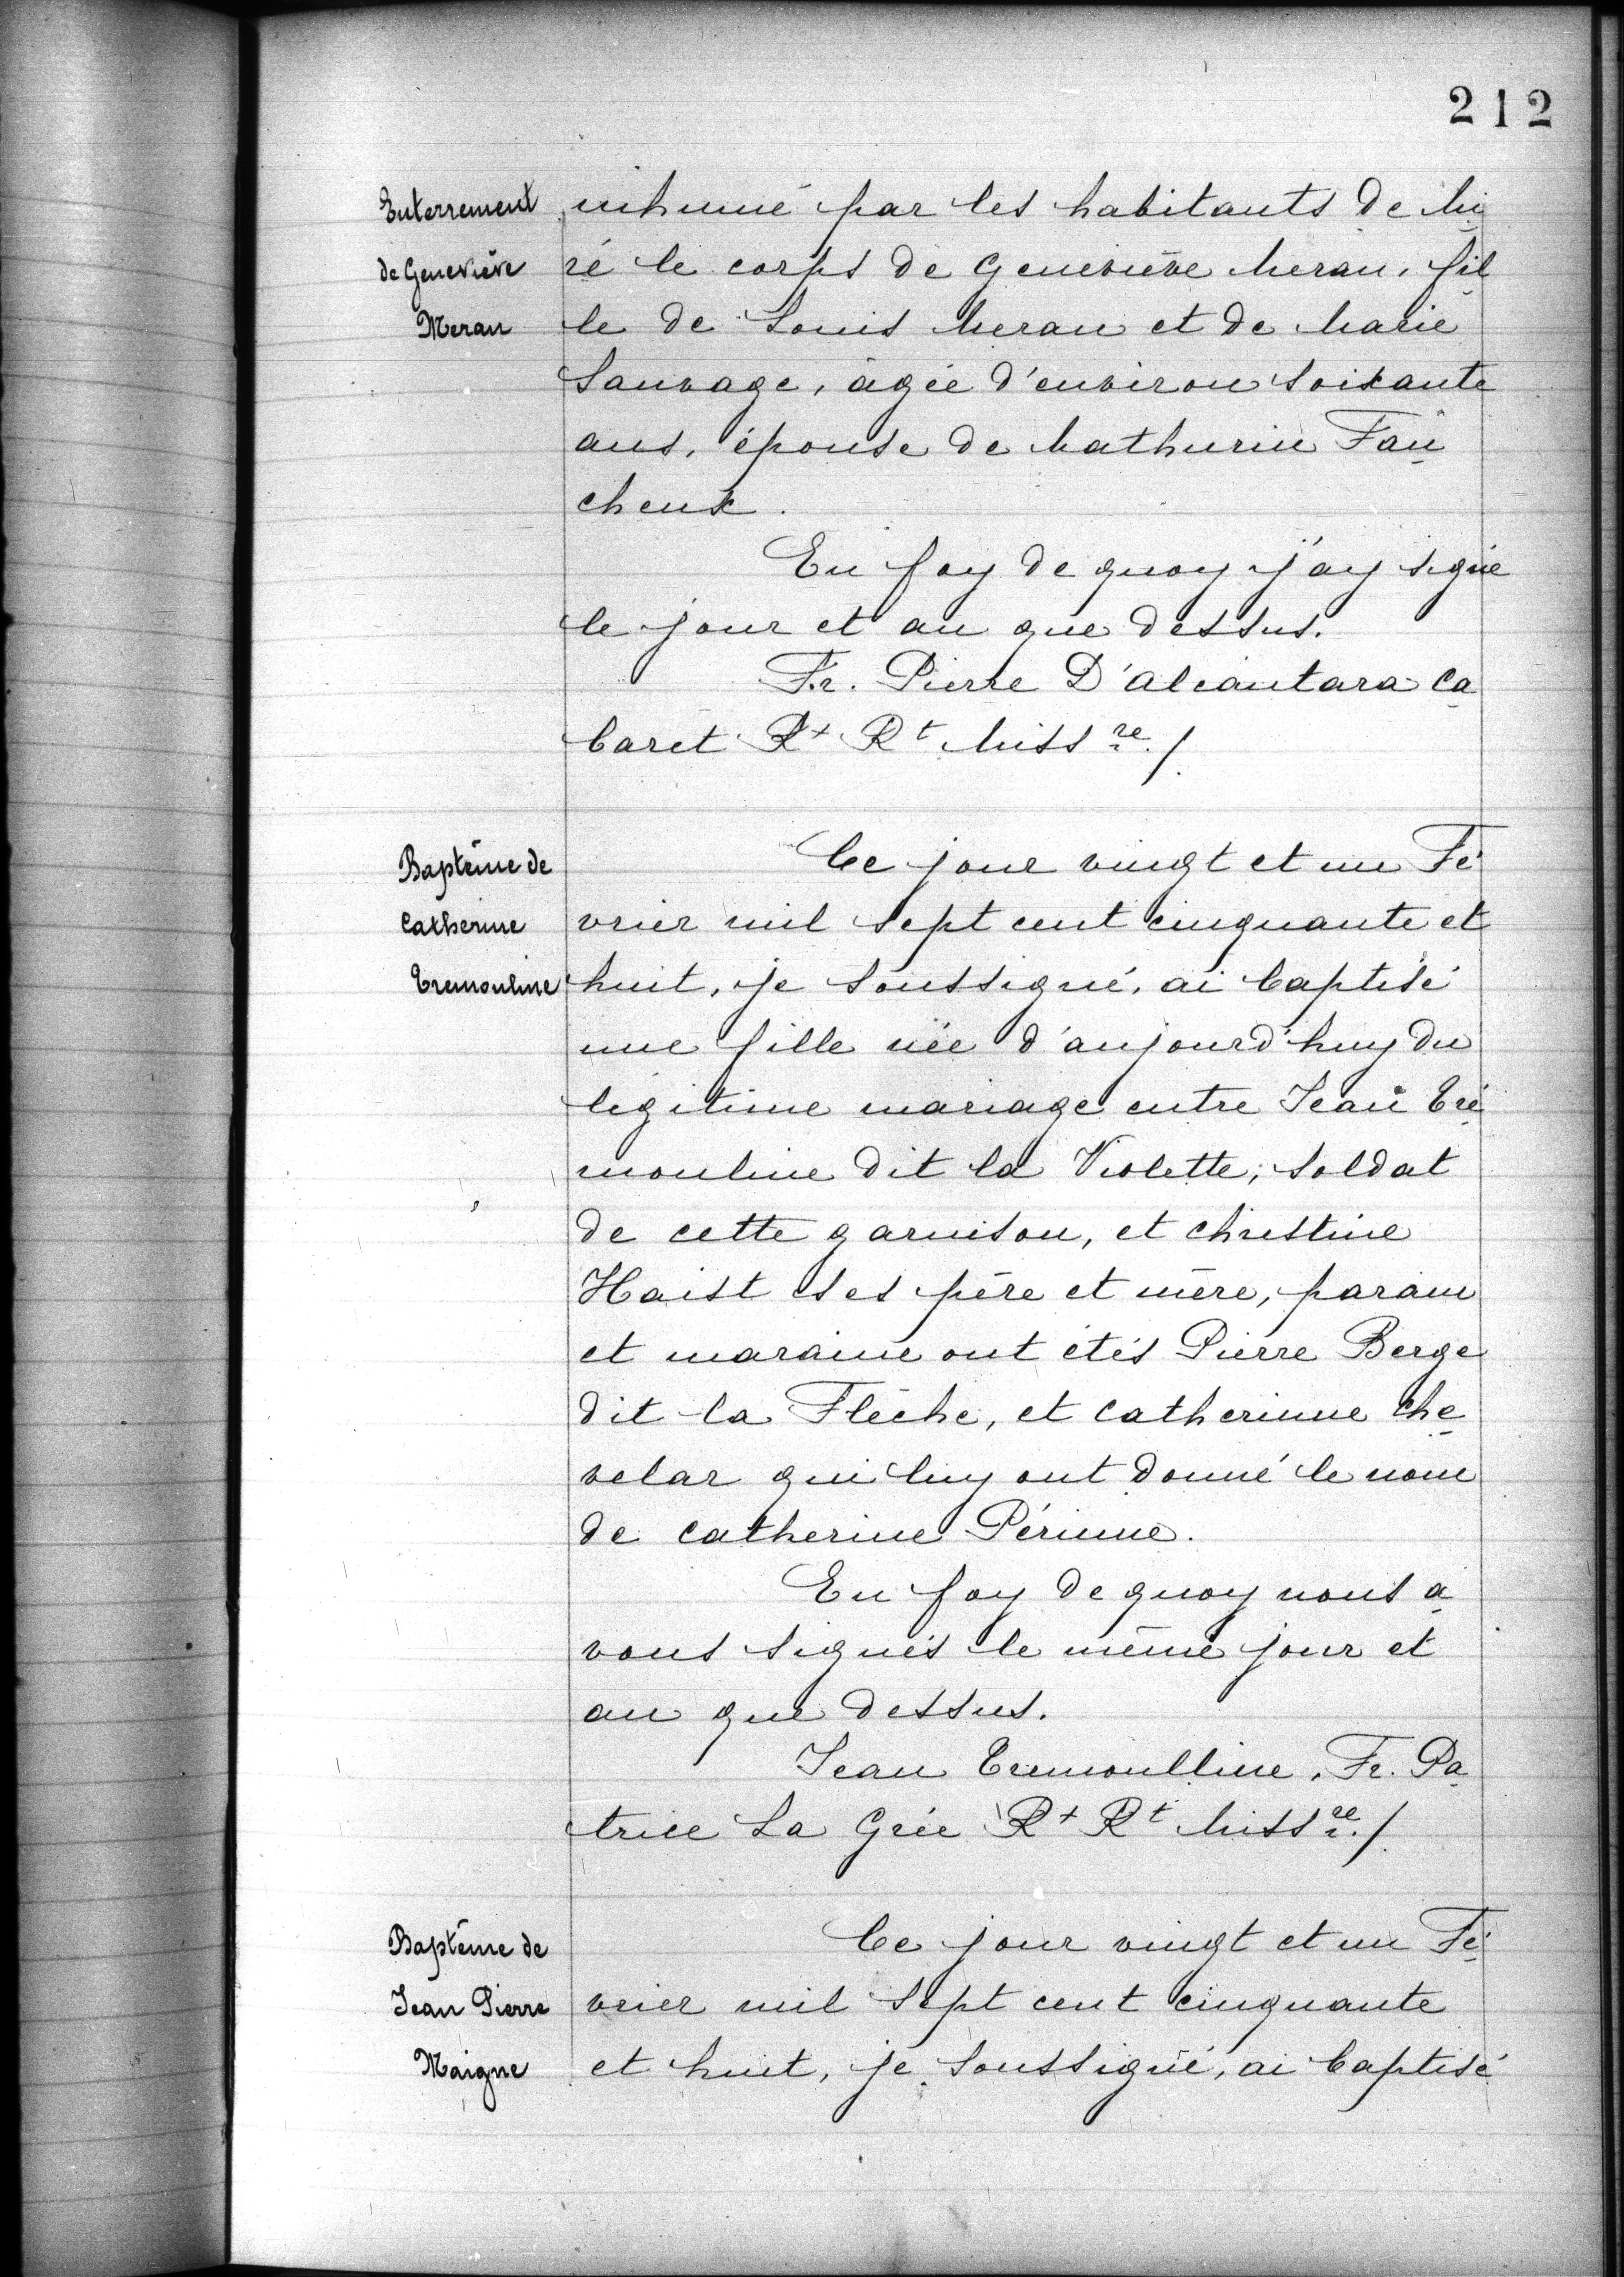 212
Enterrement
de Geneviève
Meran
inhumé par les habitants de Mi
ré le corps de Geneviève Meran, fil
le de Louis Meran et de Marie
Sauvage, âgée d'environ soixante
ans, épouse de Mathurin Fau
cheux.
En foy de quoy j'ay signé
le jour et an que dessus.
Fr. Pierre D'Alcantara Ca
baret Rt Rt Miss re./.
Baptême de
Catherine
Tremouline
Ce jour vingt et un Fé
vrier mil sept cent cinquante et
huit, je soussigné, ai baptisé
une fille née d'aujourd'huy du
légitime mariage entre Jean Tré
mouline dit la Violette, soldat
de cette garnison, et Christine
Haist ses père et mère, parain
et maraine ont étés Pierre Berge
dit la Flèche, et Catherinne Che
velar qui luy ont donné le nom
de Catherine Périnne.
En foy de quoy nous a
vons signés le même jour et
an que dessus.
Jean Tremoulline, Fr. Pa
trice La Grée Rt Rt Miss re./.
Baptême de
Jean Pierre
Maigne
Ce jour vingt et un Fé
vrier mil sept cent cinquante
et huit, je soussigné, ai baptisé